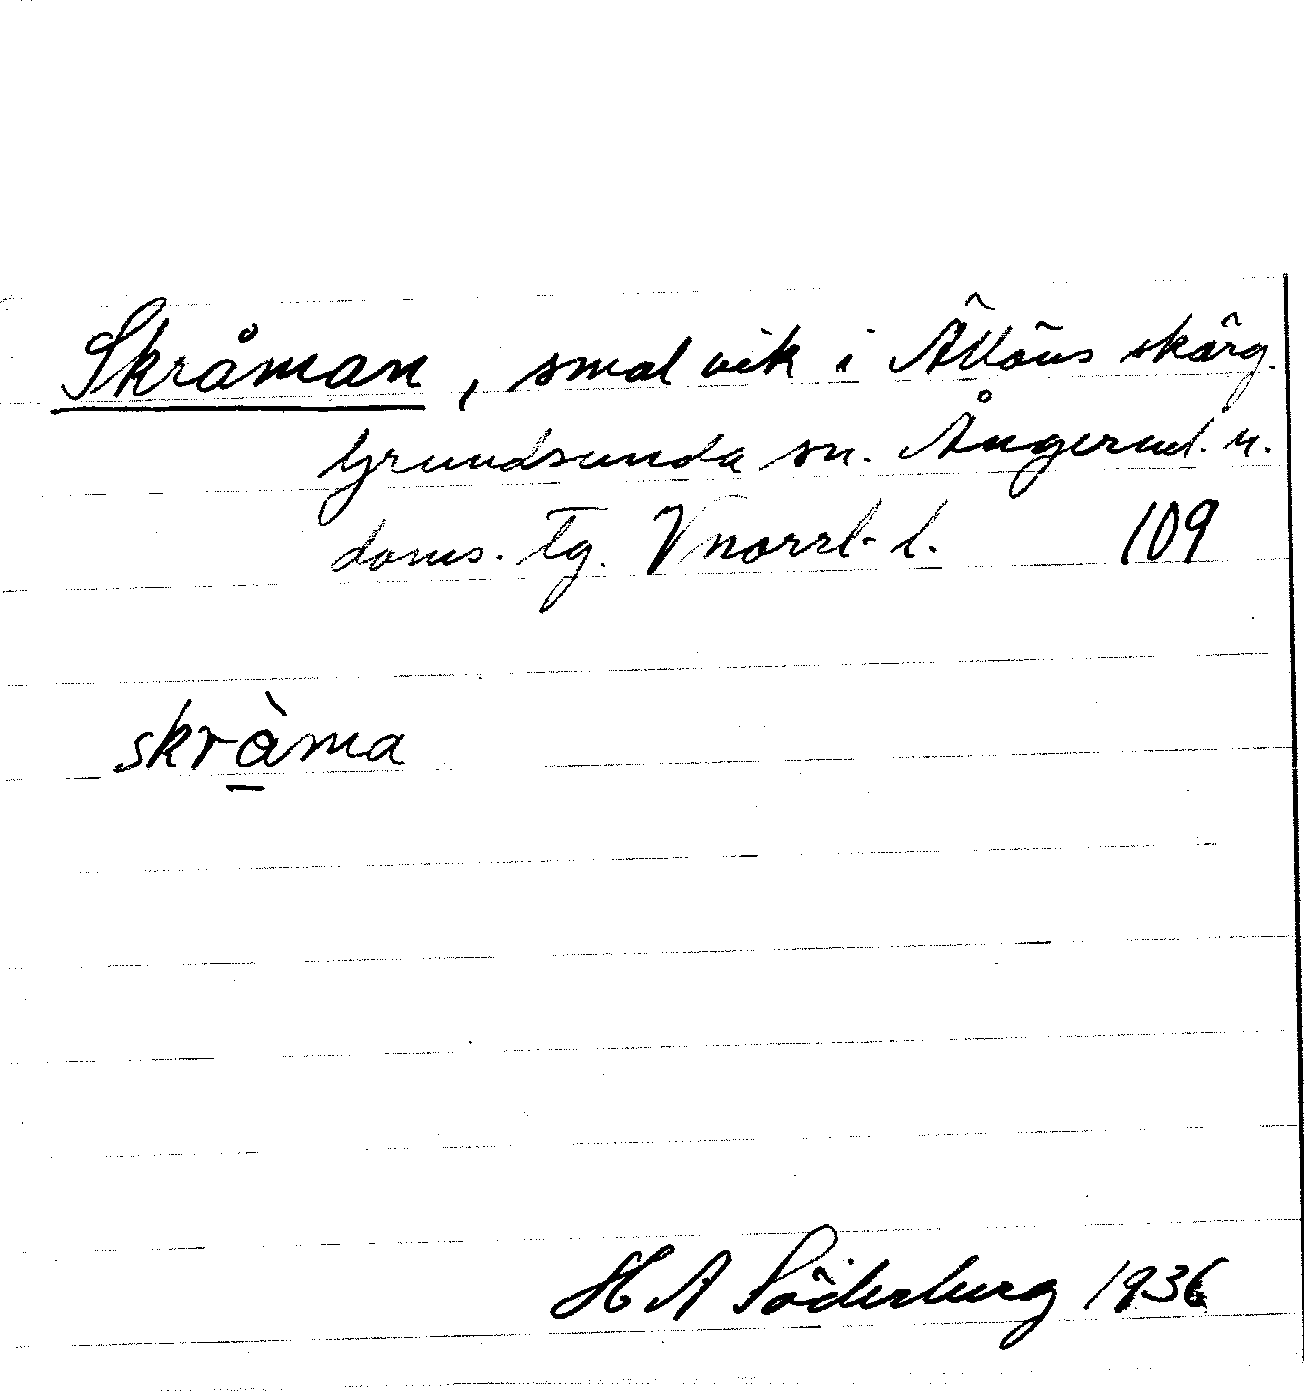 Skråman, smal vik i Ällöns skärg.
Grundsunda sn. Ångerml. n.
doms. Tg. Vnorrl. l. 109
skràma
H A Söderberg 1936